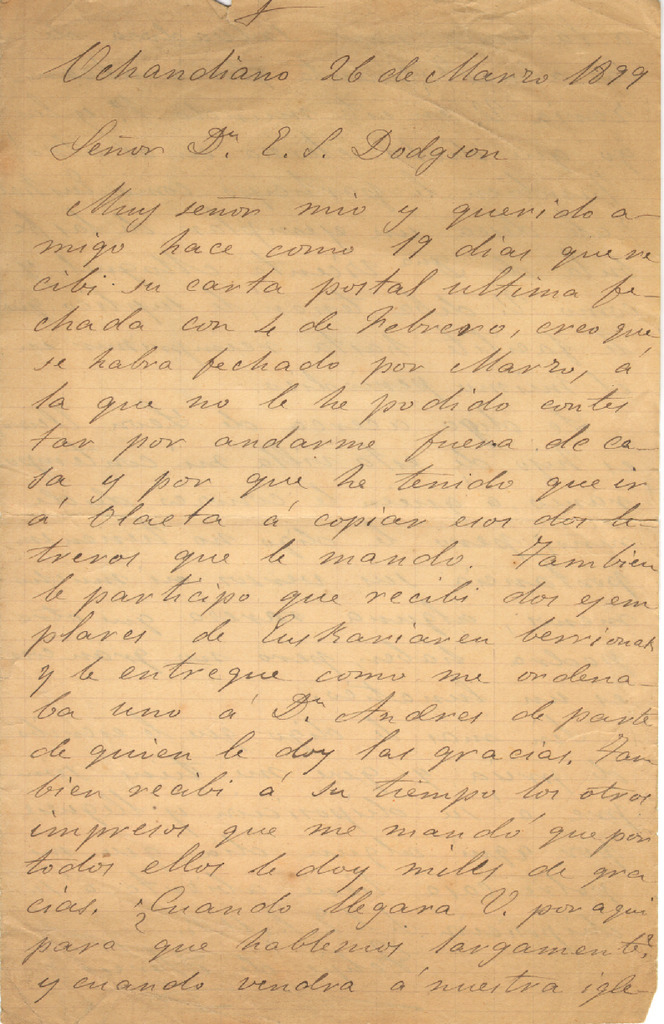 Ochandiano 26 de Marzo 1899
Señor Dn. E. S. Dodgson
Muy señor mio y querido a-
migo hace como 19 dias que re
cibi su carta postal ultima fe-
chada con 4 de Febrero, creo que
se habra fechado por Marzo, á
la que no le he podido contes
tar por andarme fuera de ca-
sa y por que he tenido que ir
á Olaeta á copiar esos dos le-
treros que le mando. Tambien
le participo que recibi dos ejem
plares de Euskariaren berrionak
y le entregue como me ordena-
ba uno á Dn. Andres de parte
de quien le doy las gracias. Tam
bien recibi á su tiempo los otros
impresos que me mandó que por
todos ellos le doy miles de gra
cias. ¿Cuando llegara V. por aqui
para que hablemos largamente?
y cuando vendra á nuestra igle-